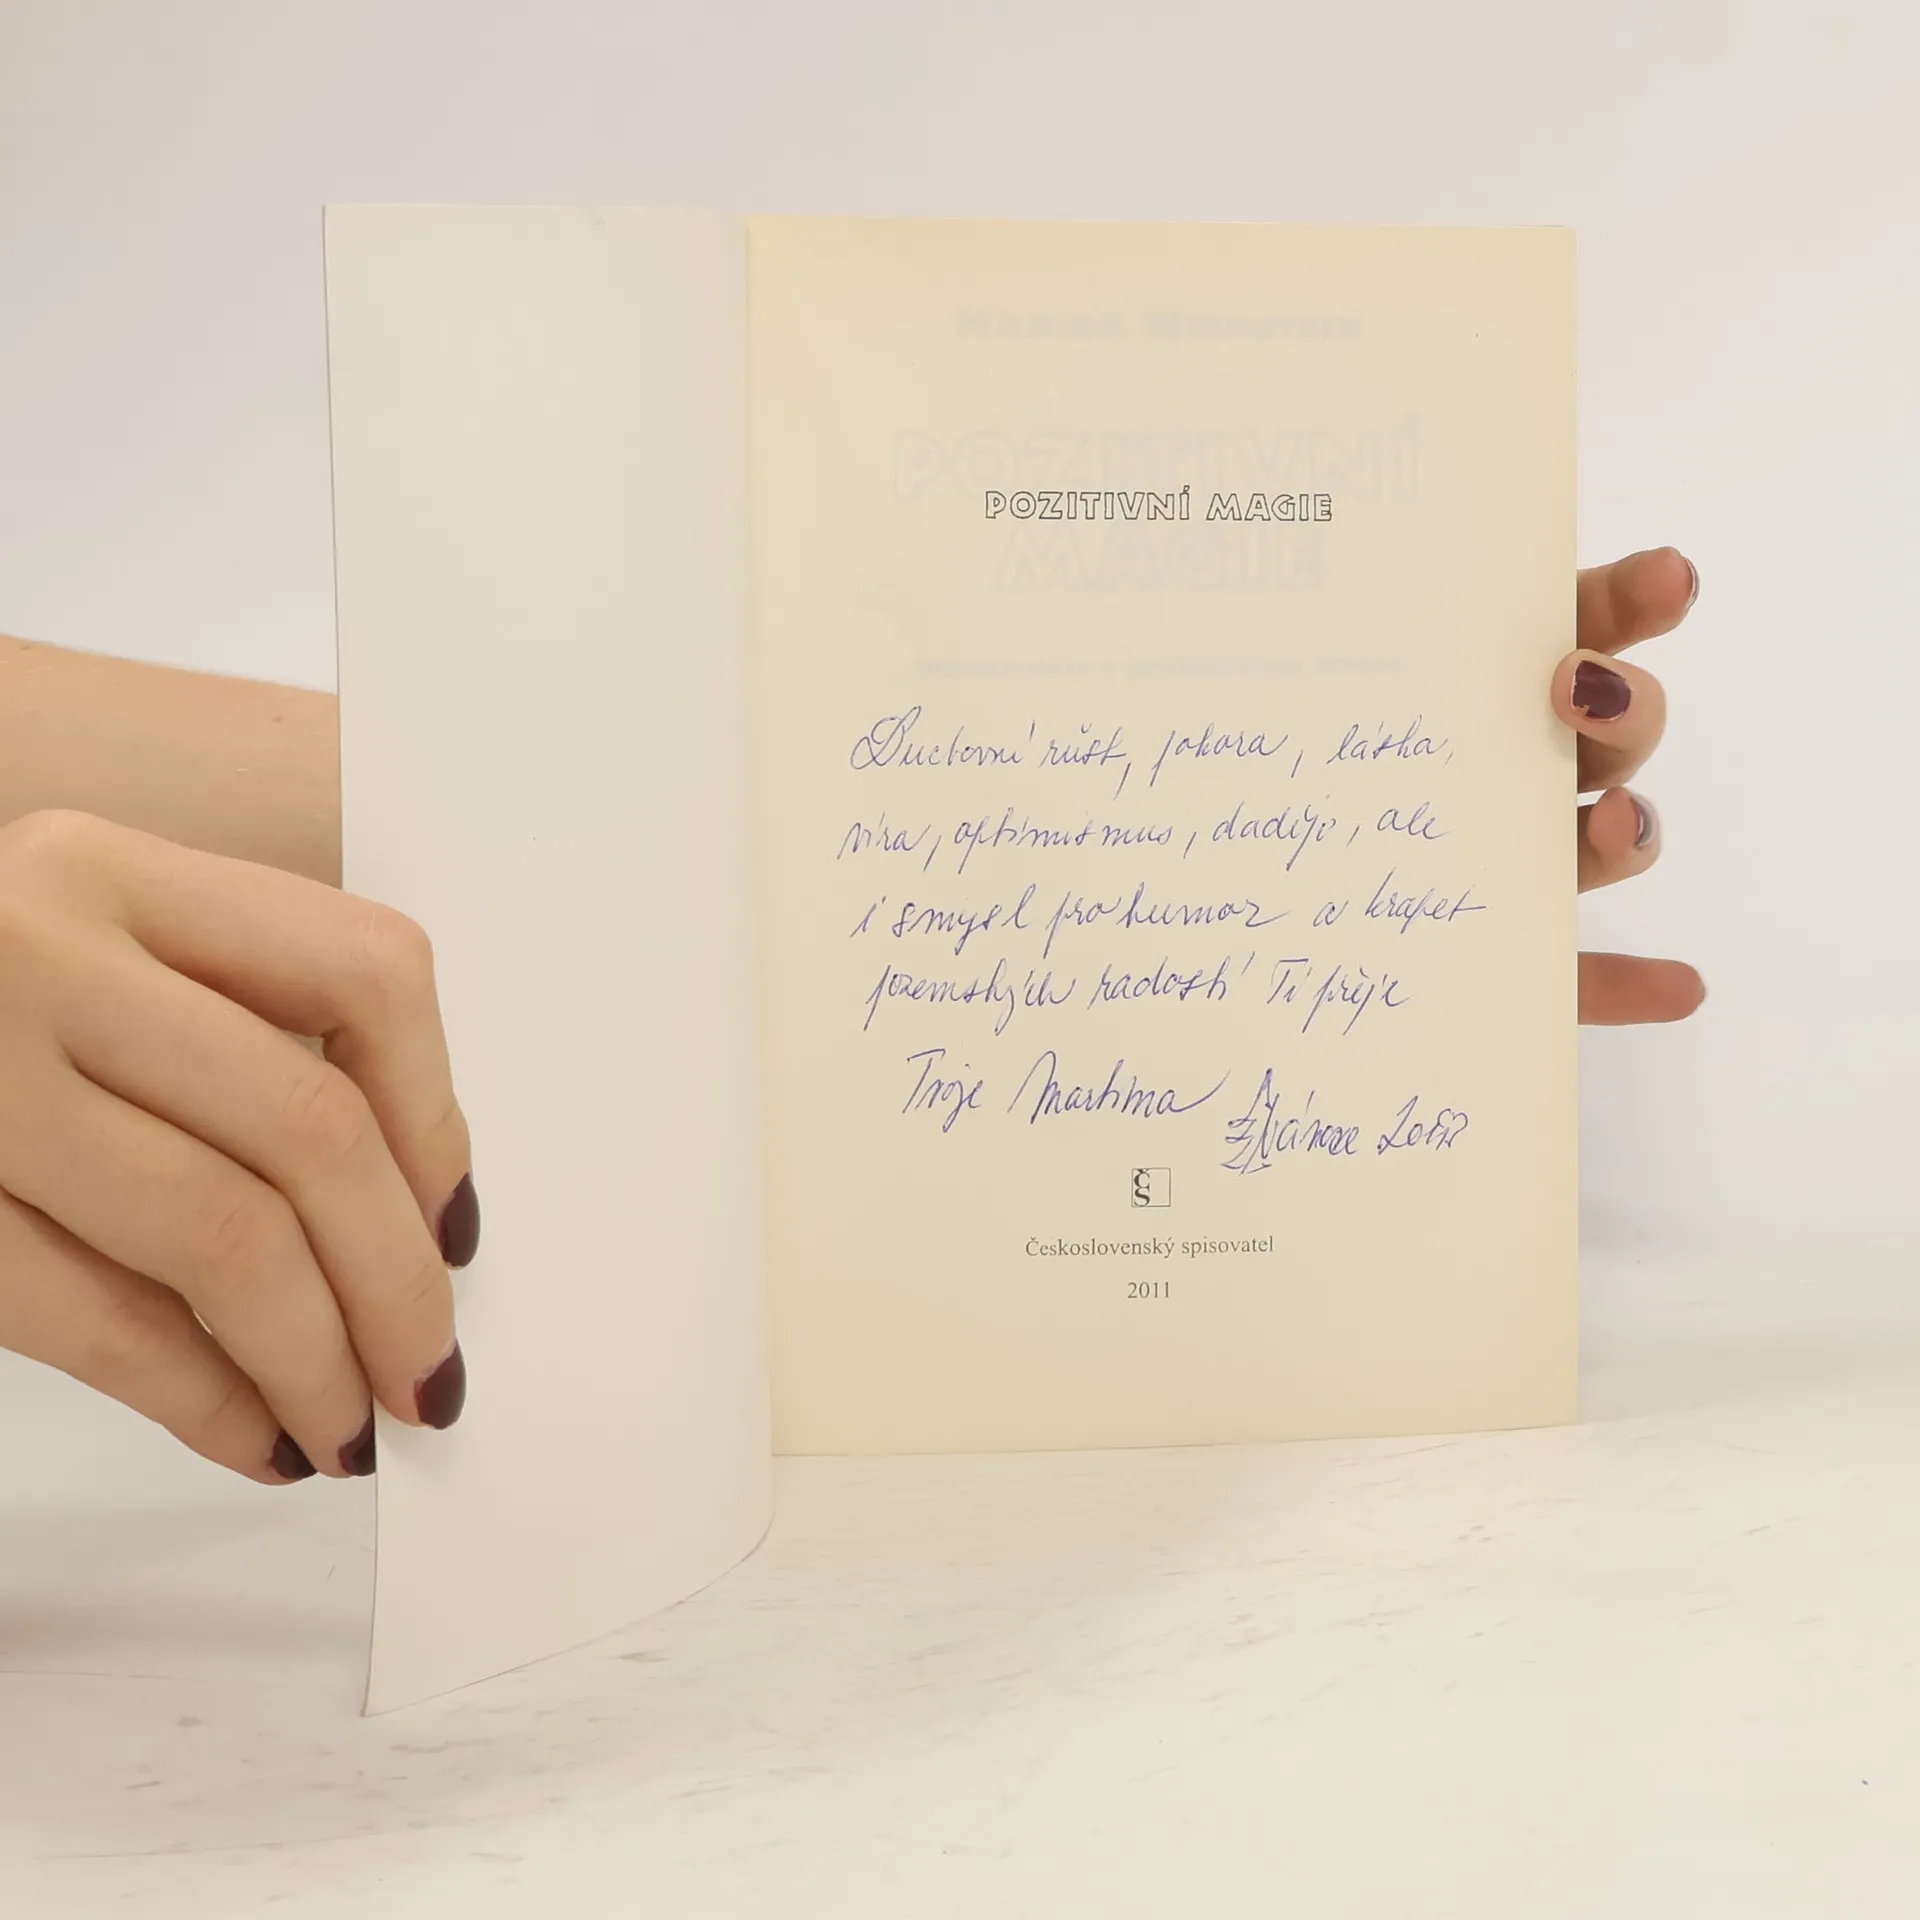 POZITIVNÍ
POZITIVNÍ MAGIE
MAGIE
Duchovní růst, pokora, láska,
víra, optimismus, daděje, ale
i smysl pro humor a krapet
pozemských radostí Ti přeje
Tvoje Martina Vánoce
ČS
Československý spisovatel
2011